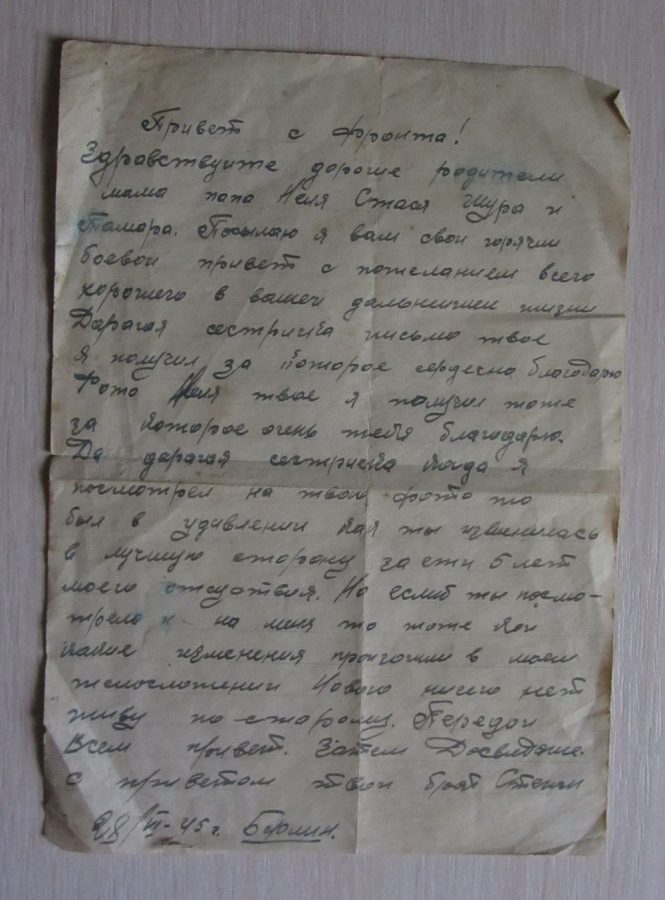 Привет с фронта!
Здравствуйте дорогие родители
мама папа Неля Стася Шура и
Тамара. Посылаю я вам свой горячий
боевой привет с пожеланием всего
хорошего в вашей дальнейшей жизни
Дарагая сестричка письмо твое
я получил за которое сердечно благодарю
Фото Неля твое я получил тоже
за которое очень тебя благодарю.
Да дарагая сестричка когда я
посмотрел на твои фото то
был в удивлении как ты изменилась
в лучшую сторону за эти 5 лет
моего отсуствия. Но еслиб ты посмо-
трела на меня то тоже кой
какие изменения произошли в моем
телосложении Нового ничего нет
живу по-старому. Передай
Всем привет. Затем Досвидание.
с приветом твой брат Степан
28/VI-45 г. Берлин.